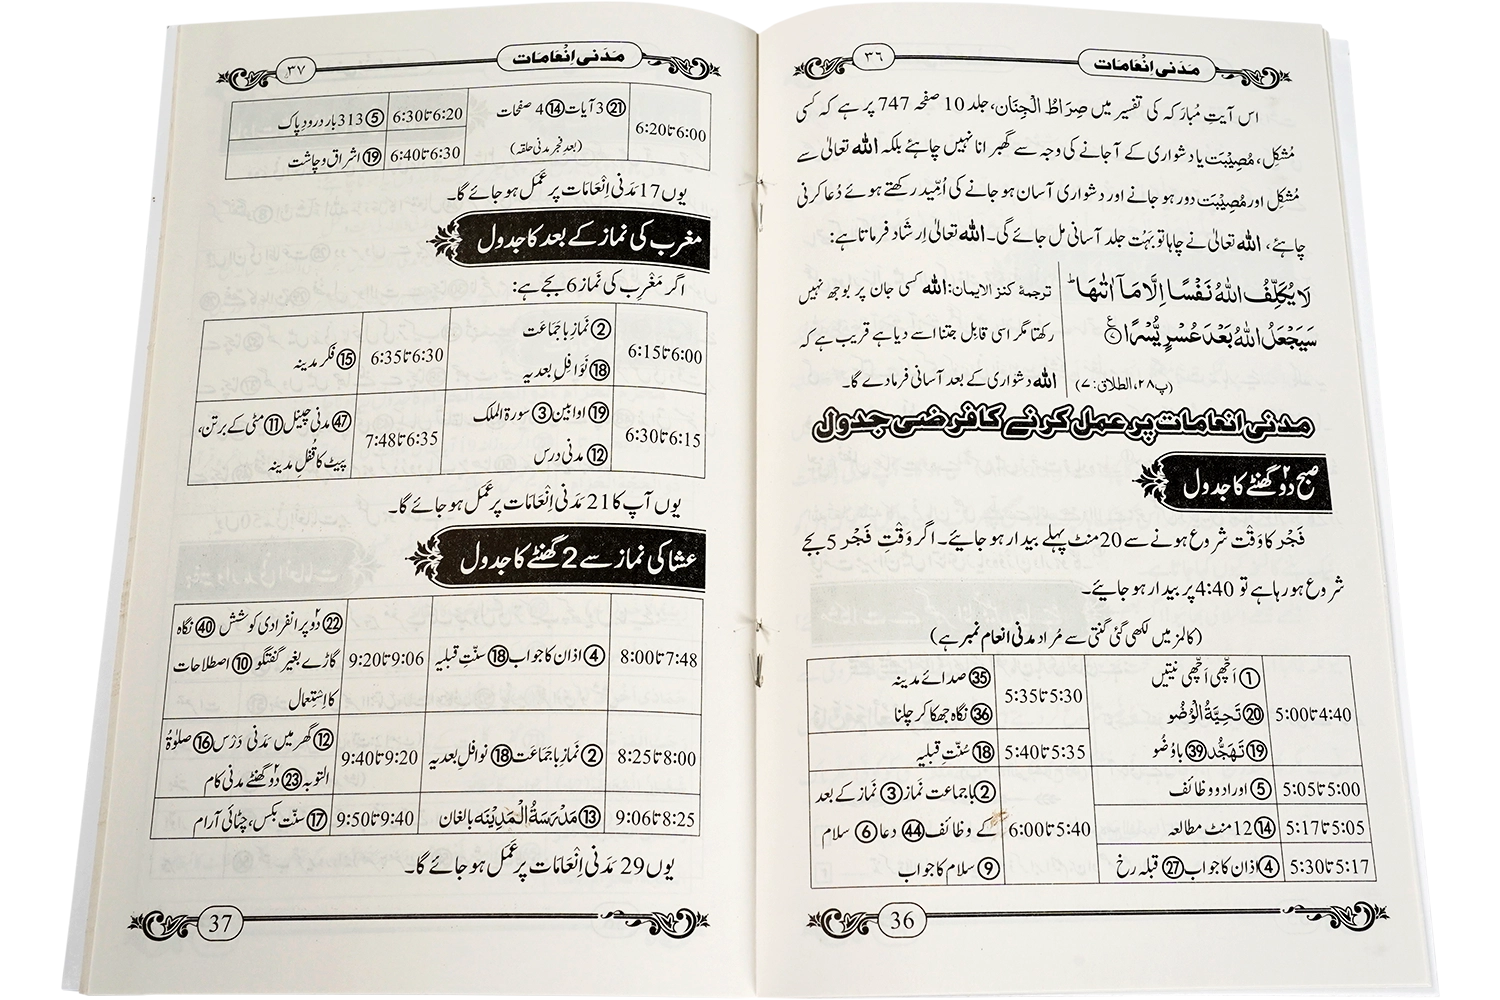 مَدَنی اِنْعَامَات
۳۶
اس آیتِ مُبارَکہ کی تفسیر میں صِرَاطُ الْجِنَان، جلد 10 صفحہ 747 پر ہے کہ کسی
مُشکِل، مُصِیْبَت یا دشواری کے آجانے کی وجہ سے گھبرانا نہیں چاہئے بلکہ اللہ تعالیٰ سے
مُشکِل اور مُصِیْبَت دور ہوجانے اور دشواری آسان ہوجانے کی اُمِّید رکھتے ہوئے دُعا کرنی
چاہئے، اللہ تعالیٰ نے چاہا تو بَہُت جلد آسانی مل جائے گی۔ اللہ تعالیٰ اِرشاد فرماتا ہے:
لَا یُكَلِّفُ اللّٰهُ نَفْسًا اِلَّا مَاۤ اٰتٰىهَاؕ
سَیَجْعَلُ اللّٰهُ بَعْدَ عُسْرٍ یُّسْرًا
(پ۲۸، الطلاق: ۷)
ترجمۂ کنز الایمان: اللہ کسی جان پر بوجھ نہیں
رکھتا مگر اسی قابِل جتنا اسے دیا ہے قریب ہے کہ
اللہ دشواری کے بعد آسانی فرمادے گا۔
مدنی انعامات پر عمل کرنے کا فرضی جدول
صبح دو۲ گھنٹے کا جدول
فَجْر کا وَقْت شروع ہونے سے 20 منٹ پہلے بیدار ہوجایئے۔ اگر وَقْتِ فَجْر 5 بجے
شروع ہورہا ہے تو 4:40 پر بیدار ہوجایئے۔
(کالمز میں لکھی گئی گنتی سے مُراد مدنی انعام نمبر ہے)
4:40 تا 5:00
① اَچّھی اَچّھی نیتیں
⑳ تَحِیَّۃُ الْوُضُو
⑲ تَہَجُّد ㊴ باوُضُو
5:00 تا 5:05
⑤ اوراد و وظائف
5:05 تا 5:17
⑭ 12 منٹ مطالعہ
5:17 تا 5:30
④ اذان کا جواب ㉗ قبلہ رخ
5:30 تا 5:35
㉟ صدائے مدینہ
㊱ نگاہ جھکا کر چلنا
5:35 تا 5:40
⑱ سُنّتِ قبلیہ
5:40 تا 6:00
② باجماعت نماز ③ نماز کے بعد
کے وظائف ㊹ دعا ⑥ سلام
⑨ سلام کا جواب
36
مَدَنی اِنْعَامَات
۳۷
6:00 تا 6:20
㉑ 3 آیات ⑭ 4 صفحات
(بعدِ فجر مدنی حلقہ)
6:20 تا 6:30
⑤ 313 بار درودِ پاک
6:30 تا 6:40
⑲ اشراق و چاشت
یوں 17 مَدَنی اِنْعَامَات پر عَمَل ہوجائے گا۔
مغرب کی نماز کے بعد کا جدول
اگر مَغْرِب کی نَماز 6 بجے ہے:
6:00 تا 6:15
② نَمازِ باجَماعَت
⑱ نَوافِلِ بعدیہ
6:30 تا 6:35
⑮ فکرِ مدینہ
6:15 تا 6:30
⑲ اوابین ③ سورۃ الملک
⑫ مدنی درس
6:35 تا 7:48
㊼ مدنی چینل ⑪ مٹی کے برتن،
پیٹ کا قُفلِ مدینہ
یوں آپ کا 21 مَدَنی اِنْعَامَات پر عَمَل ہوجائے گا۔
عشا کی نماز سے 2 گھنٹے کا جدول
7:48 تا 8:00
④ اذان کا جواب ⑱ سنّتِ قبلیہ
9:06 تا 9:20
㉒ دو۲ پر انفرادی کوشش ㊵ نگاہ
گاڑے بغیر گفتگو ⑩ اصطلاحات
کا اِسْتِعمال
8:00 تا 8:25
② نَمازِ باجَماعَت ⑱ نوافلِ بعدیہ
9:20 تا 9:40
⑫ گھر میں مَدَنی دَرْس ⑯ صلوٰۃُ
التوبہ ㉓ دو۲ گھنٹے مدنی کام
8:25 تا 9:06
⑬ مَدْرَسَۃُ الْمَدِیْنَہ بالغان
9:40 تا 9:50
⑰ سنّت بکس، چٹائی آرام
یوں 29 مَدَنی اِنْعَامَات پر عَمَل ہوجائے گا۔
37